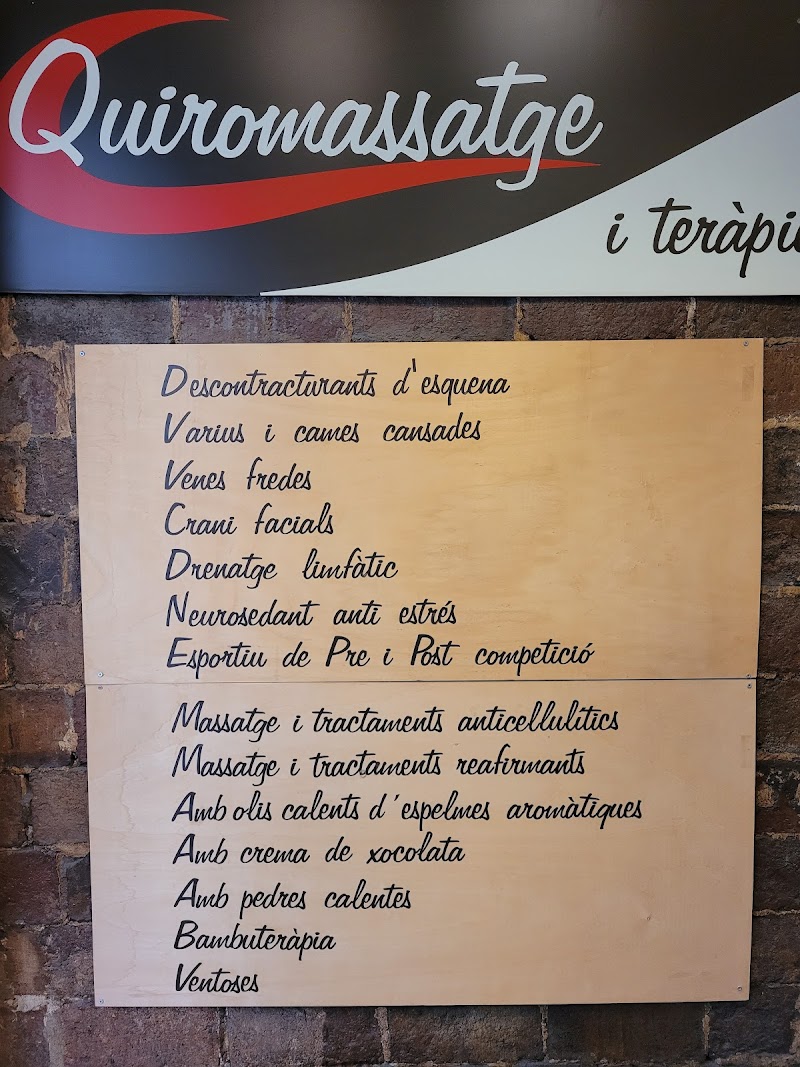 Quiromassatge
i
Descontracturants d'esquena
Varius i cames cansades
Venes fredes
Crani facials
Drenatge limfàtic
Neurosedant anti estrés
Esportiu de Pre i Post competició
Massatge i tractaments anticel·lulítics
Massatge i tractaments reafirmants
Amb olis calents d'espelmes aromàtiques
Amb crema de xocolata
Amb pedres calentes
Bambuteràpia
Ventoses